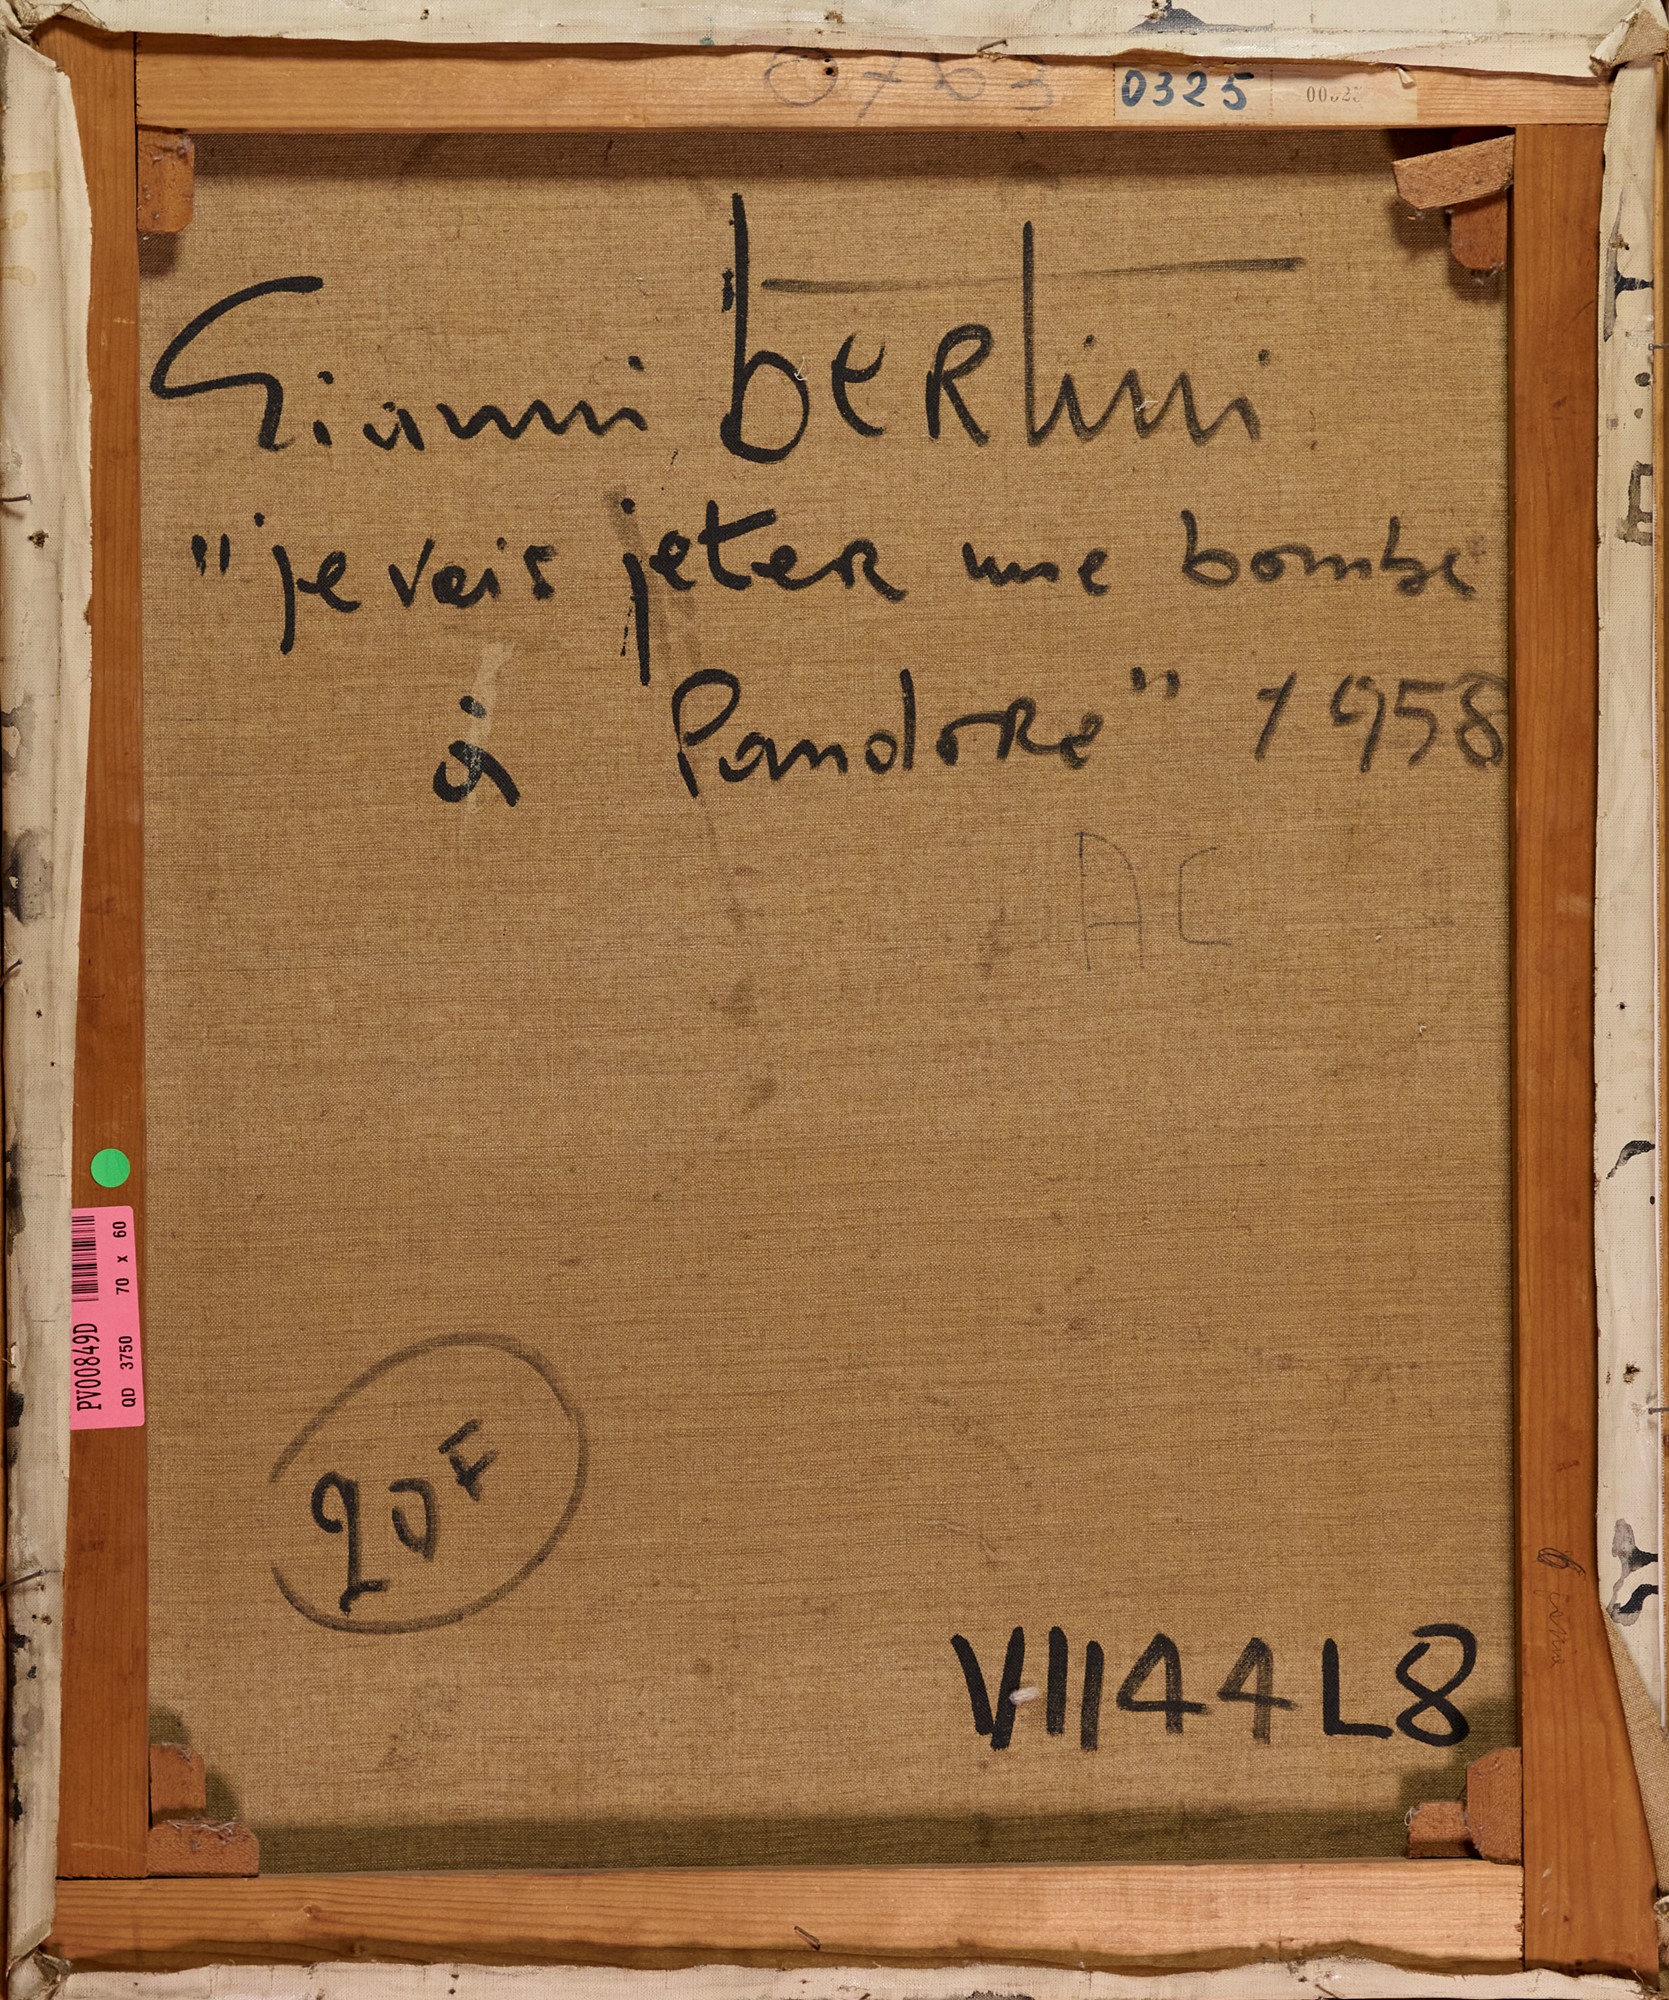 0763
0325
Gianni bertini
"je vais jeter une bombe
à Pandore" 1958
AC
PV00849D
QD 3750 70 x 60
20F
VII44L8